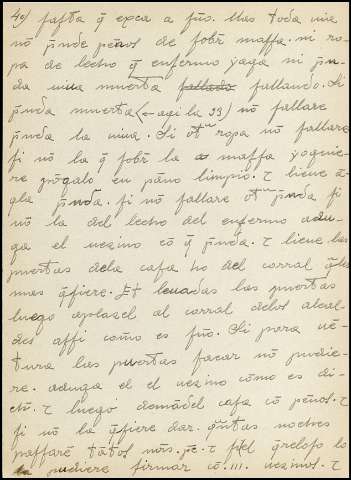 40) fasta q̃ exca a fuõ. Mas toda uia
nõ p̃nde peños de sobr̃ massa. ni ro-
pa de lecho q̃ enfermo yaga ni p̃n-
da uiua muerta fallado fallando. Si
p̃nda muerta (←aqi la 39) nõ fallare
p̃nda la uiua. Si ot^ra ropa nõ fallare
si nõ la q̃ sobr̃ la massa yoguie-
re põgalo en paño limpio. τ lieue a-
q̃la p̃nda. si nõ fallare ot^ra p̃nda si
nõ la del lecho del enfermo adu-
ga el uezino cõ q̃ p̃nda. τ lieue las
puertas dela casa ho del corral q̃les
mas q̃siere. Et leuadas las puertas
luego aplazel al corral delos alcal-
des assi como es fuõ. Si pora uẽ-
tura las puertas sacar nõ pudie-
re. aduga el el uezino como es di-
cħ. τ luego demãdel casa cõ peños. τ
si nõ la q̃siere dar. q̃ntas noches
passarẽ tãtos mrs. pc̃. τ si el q̃reloso lo
pudiere firmar cõ .III. uezinos. τ